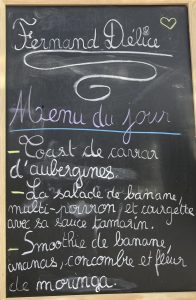 Fernand Délice
Menu du jour
- Toast de caviar
d'aubergines.
- La salade de banane,
multi-poivron, et courgette
avec sa sauce tamarin.
- Smoothie de banane,
ananas, concombre et fleur
de moringa.